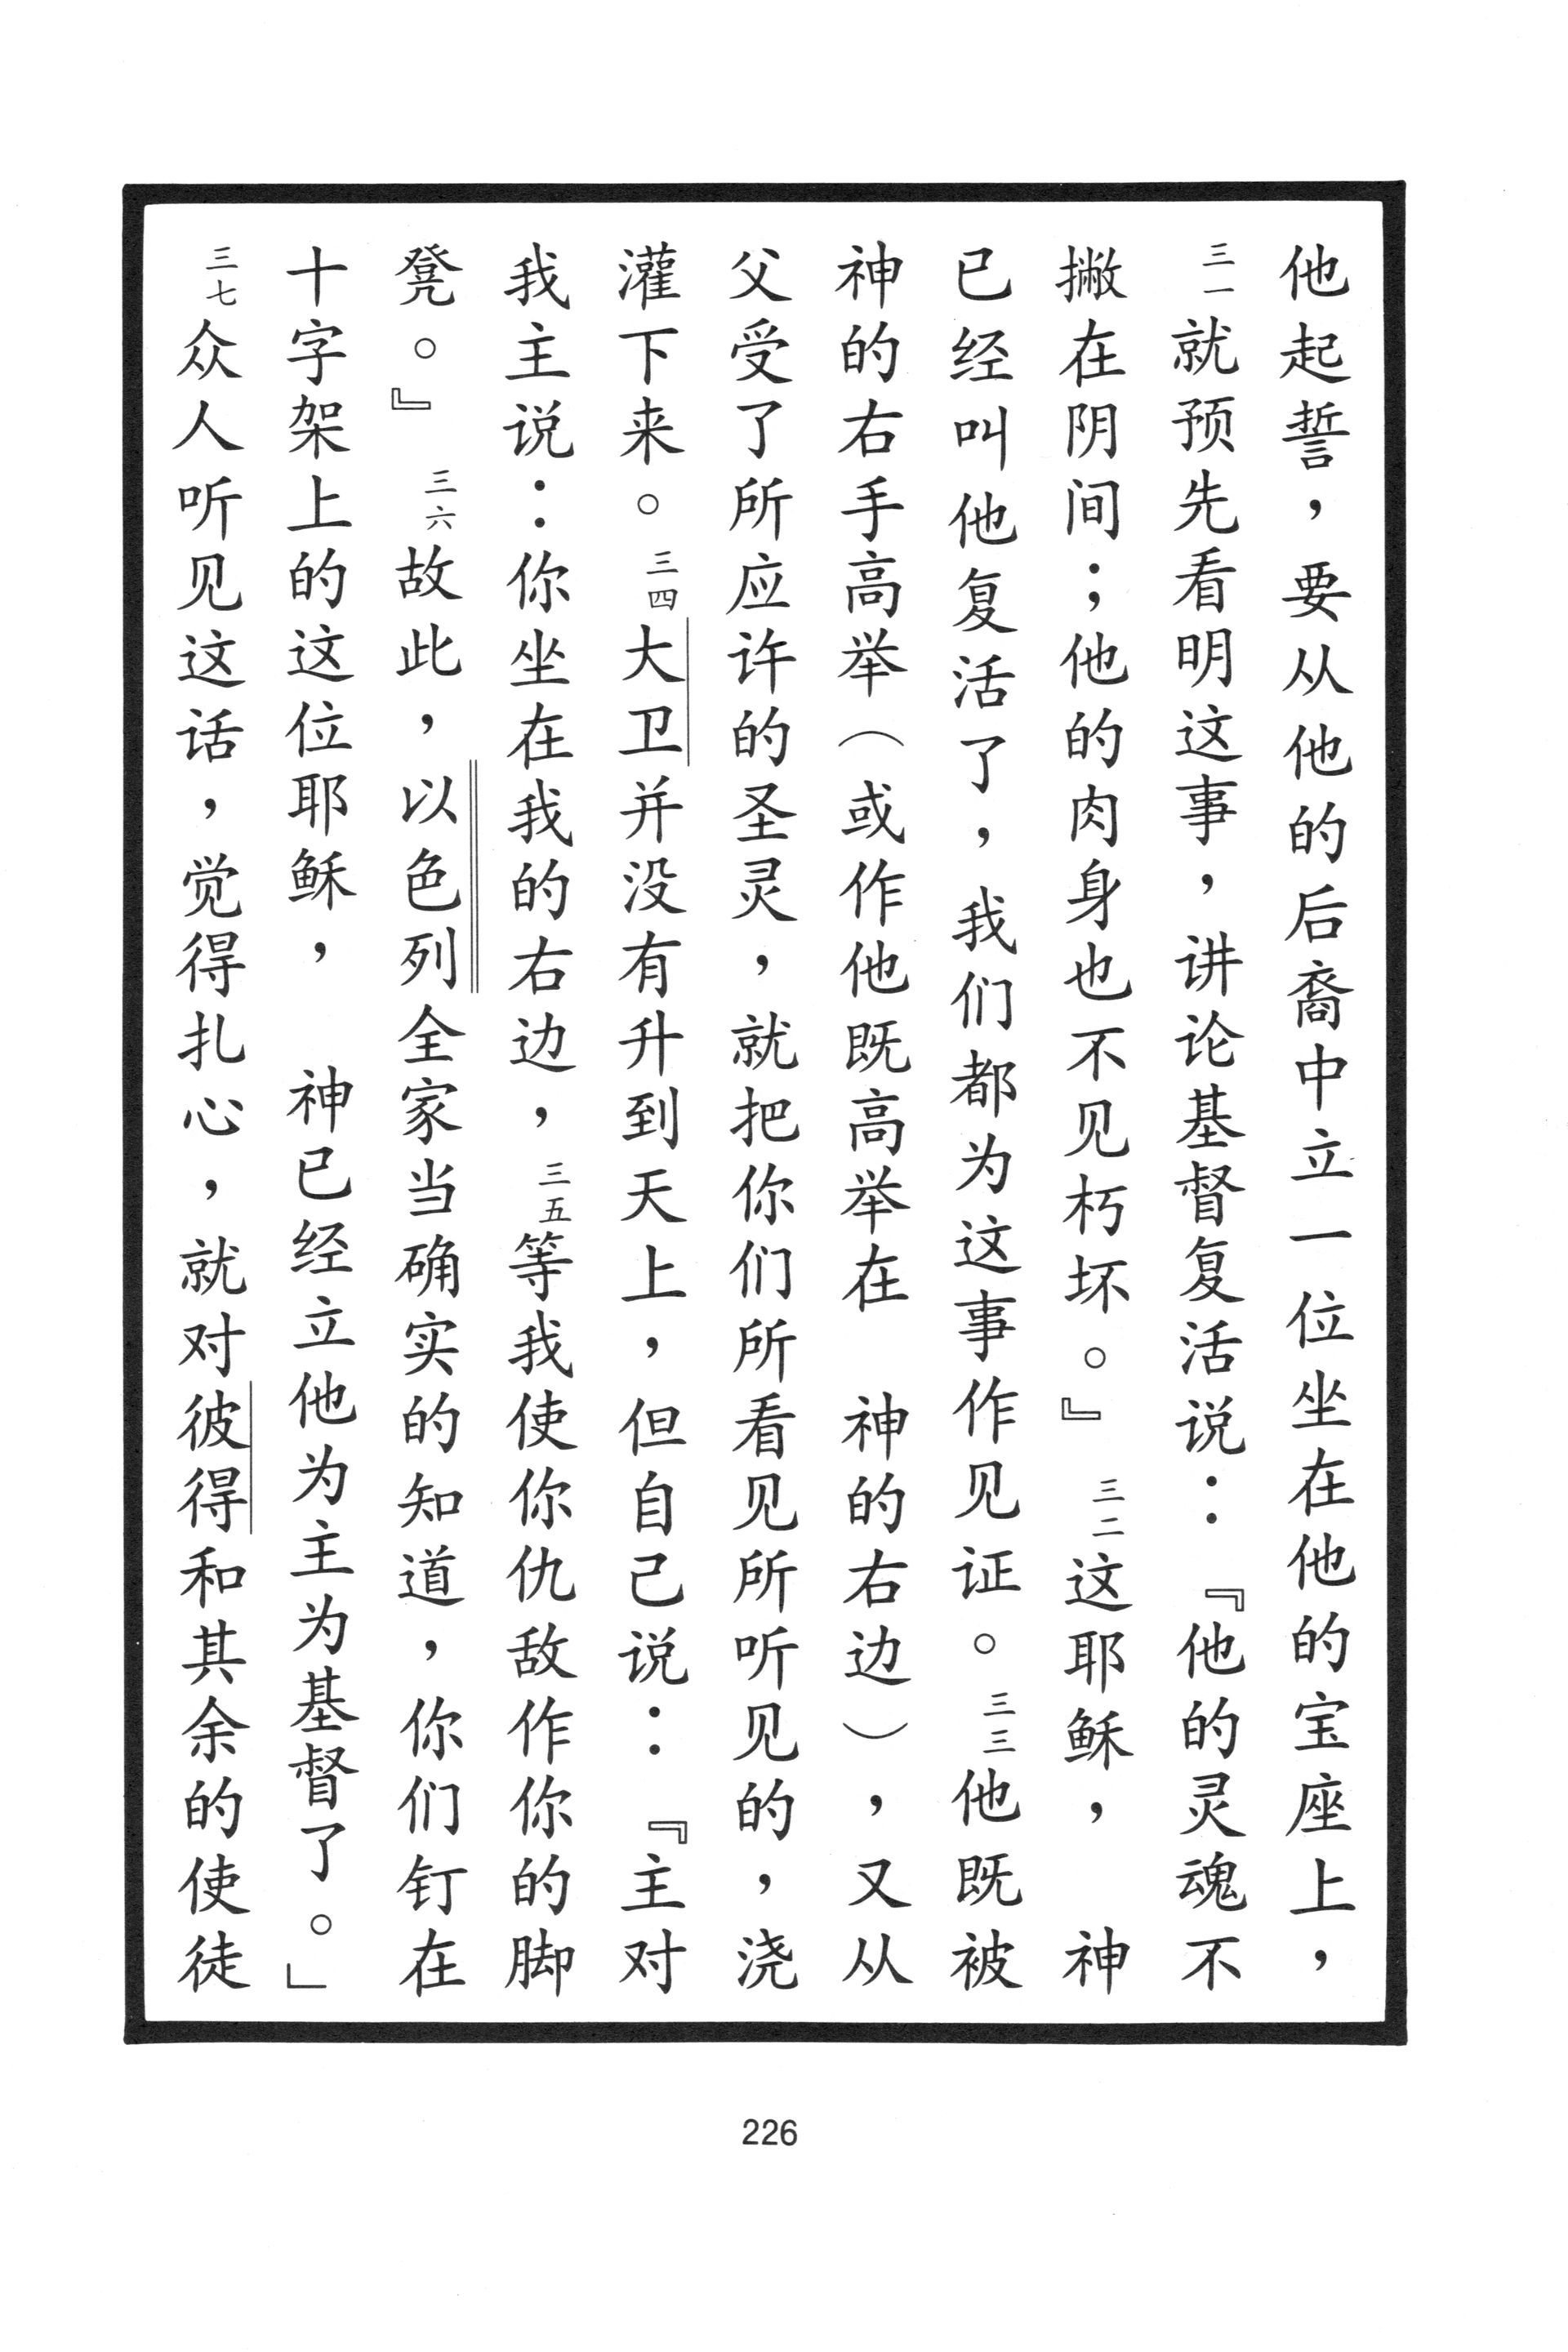 他起誓，要从他的后裔中立一位坐在他的宝座上，
三一就预先看明这事，讲论基督复活说：『他的灵魂不
撇在阴间；他的肉身也不见朽坏。』　三二这耶稣，　神
已经叫他复活了，我们都为这事作见证。三三他既被
神的右手高举（或作他既高举在　神的右边），又从
父受了所应许的圣灵，就把你们所看见所听见的，浇
灌下来。三四大卫并没有升到天上，但自己说：『主对
我主说：你坐在我的右边，三五等我使你仇敌作你的脚
凳。』　三六故此，以色列全家当确实的知道，你们钉在
十字架上的这位耶稣，　神已经立他为主为基督了。」
三七众人听见这话，觉得扎心，就对彼得和其余的使徒
226